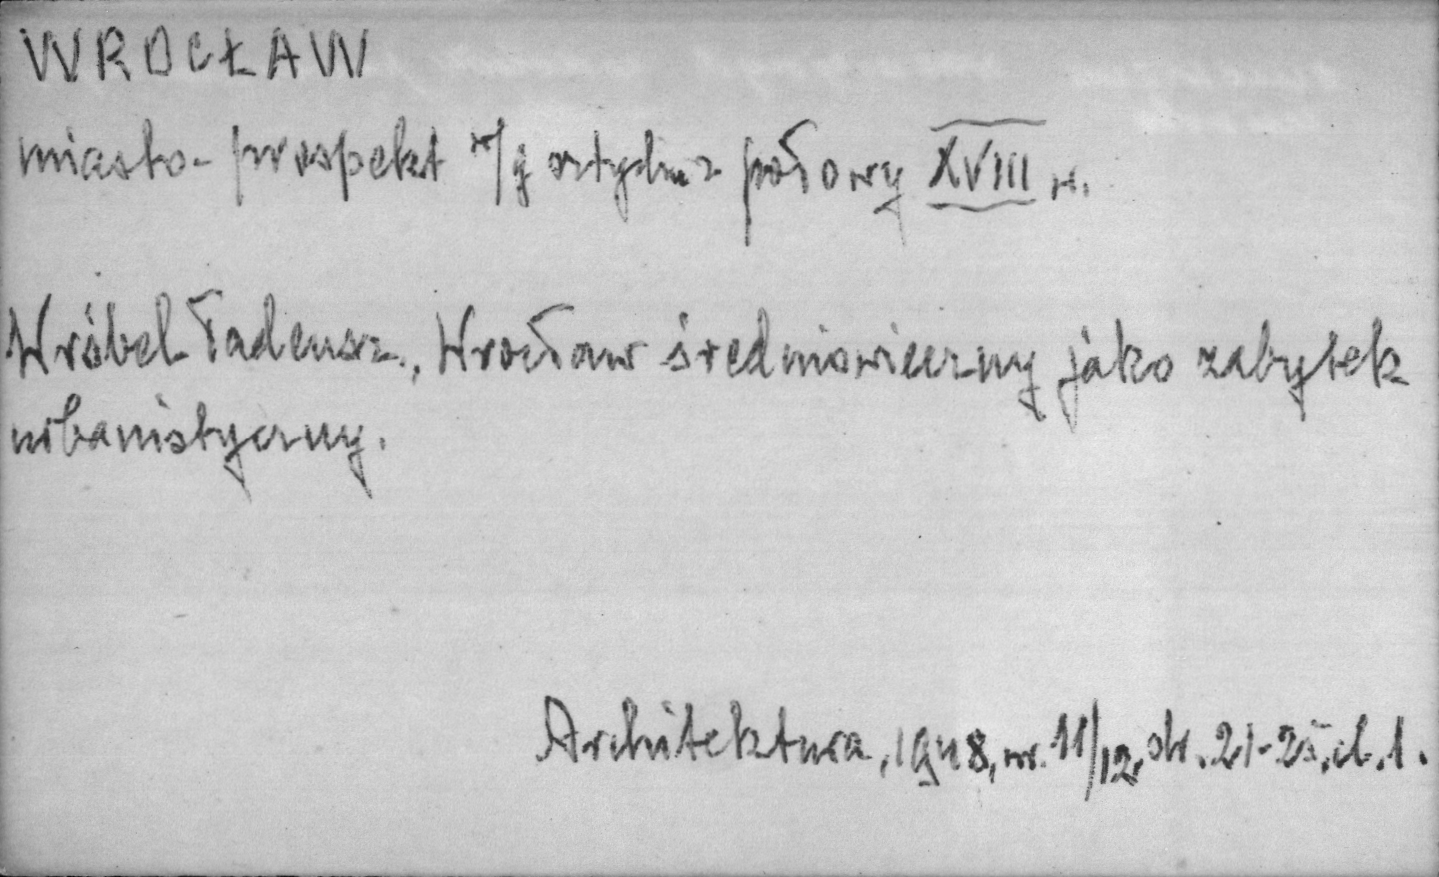 WROCŁAW
miasto - prospekt w/g sztychu z połowy XVIII w.
Wróbel Tadeusz., Wrocław średniowieczny jako zabytek
urbanistyczny.
Architektura, 1948, nr. 11/12, str. 21-25, il. 1.